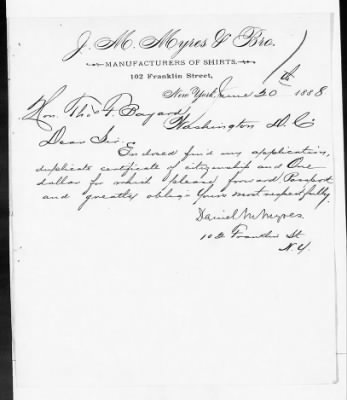 J. M. Myres & Bro.
MANUFACTURERS OF SHIRTS,
102 Franklin Street,
New York, June 20th 1888
Hon. Thos F. Bayard
Washington D. C.
Dear Sir:
Enclosed find my application,
duplicate certificate of citizenship and One
dollar for which please forward Passport
and greatly oblige Yours most respectfully,
Daniel M Myres
102 Franklin St
N.Y.